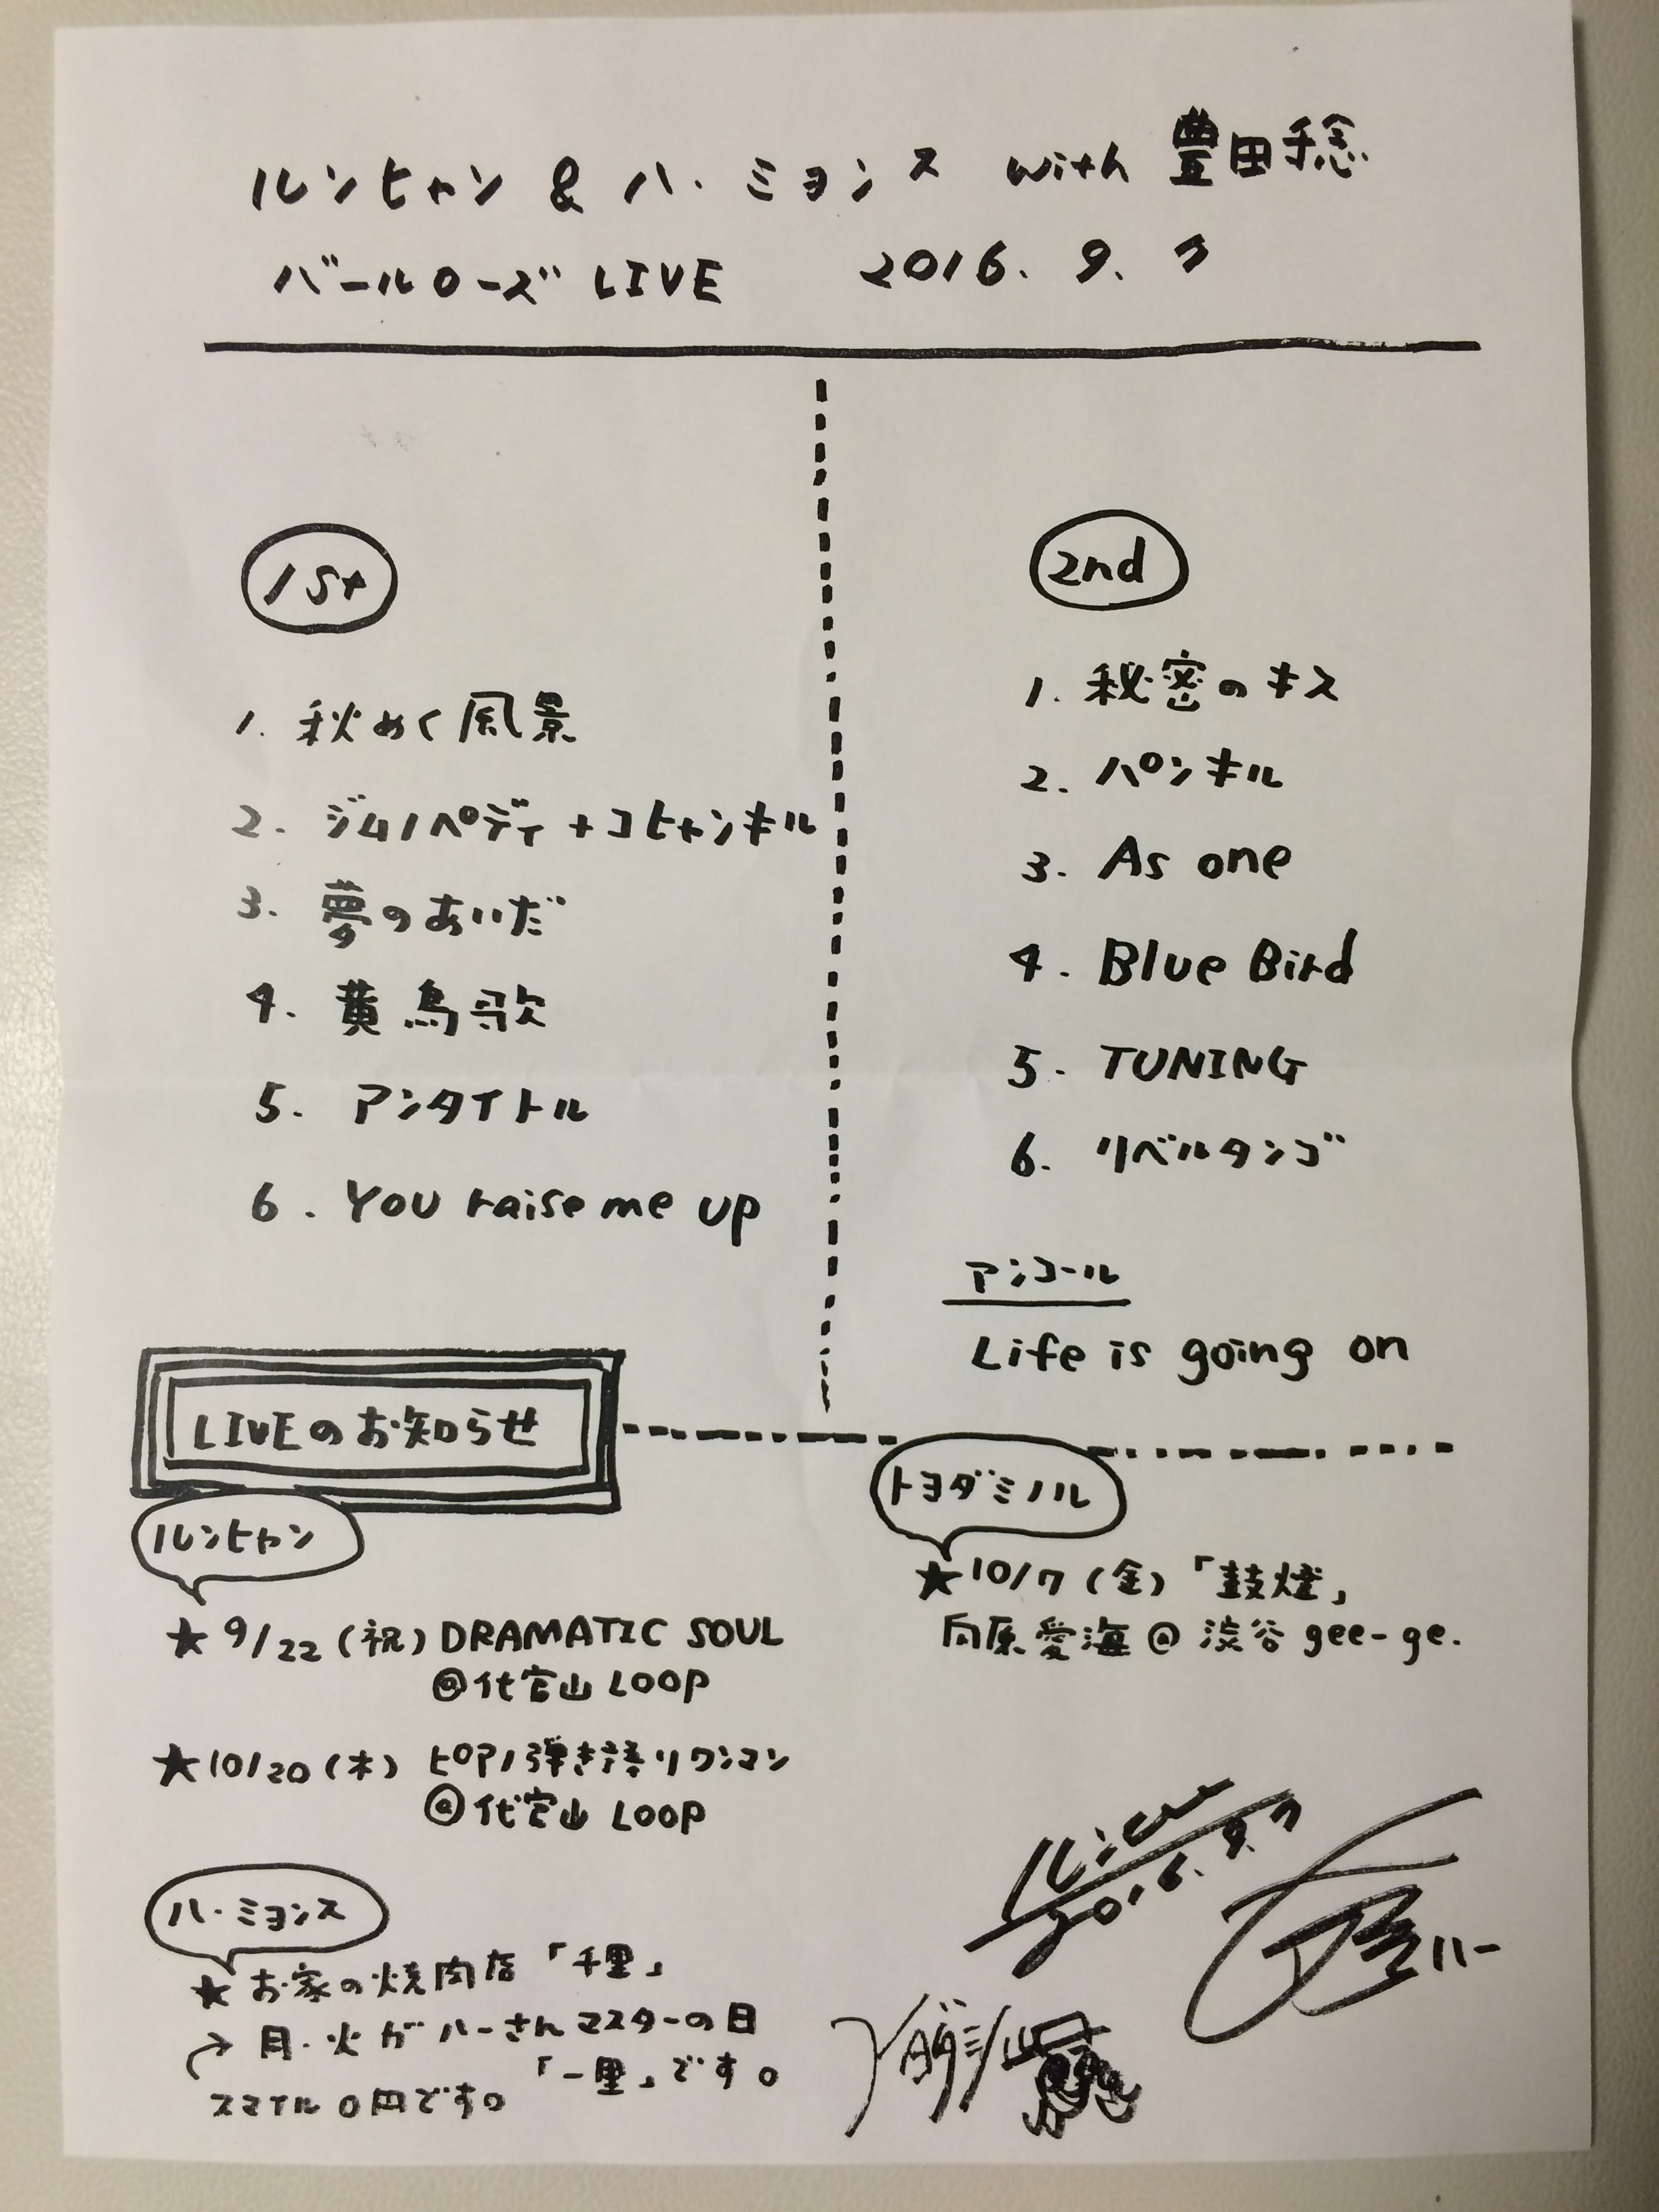 ルンヒャン & ハ・ミョンス with 豊田稔
バールローズ LIVE 2016. 9. 7
1st
1. 秋めく風景
2. ジムノペディ+コヒャンキル
3. 夢のあいだ
4. 黄鳥歌
5. アンタイトル
6. You raise me up
2nd
1. 秘密のキス
2. パンキル
3. As one
4. Blue Bird
5. TUNING
6. リベルタンゴ
アンコール
Life is going on
LIVEのお知らせ
ルンヒャン
★ 9/22 (祝) DRAMATIC SOUL
@代官山 LOOP
★10/20 (木) ピアノ弾き語りワンマン
@代官山 LOOP
ハ・ミョンス
★ お家の焼肉店「千里」
→ 月・火がハーさんマスターの日
「一里」です。
スマイル0円です。
トヨダミノル
★10/7 (金)「鼓煌」
向原愛海@渋谷 gee-ge.
2016. 9. 7
ハー